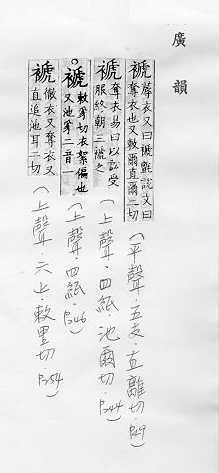 廣韻
褫
蓐衣又曰褫氈說文曰
奪衣也又敕爾直爾二切
（平聲．五支．直離切．P.49）
褫
奪衣易曰以訟受
服終朝三褫之
（上聲．四紙 池爾切．P.244）
褫
敕豸切衣絮偏也
又池豸二音一
（上聲．四紙．P.246）
褫
徹衣又奪衣又
直追池耳二切
（上聲．六止．敕里切 P.254）